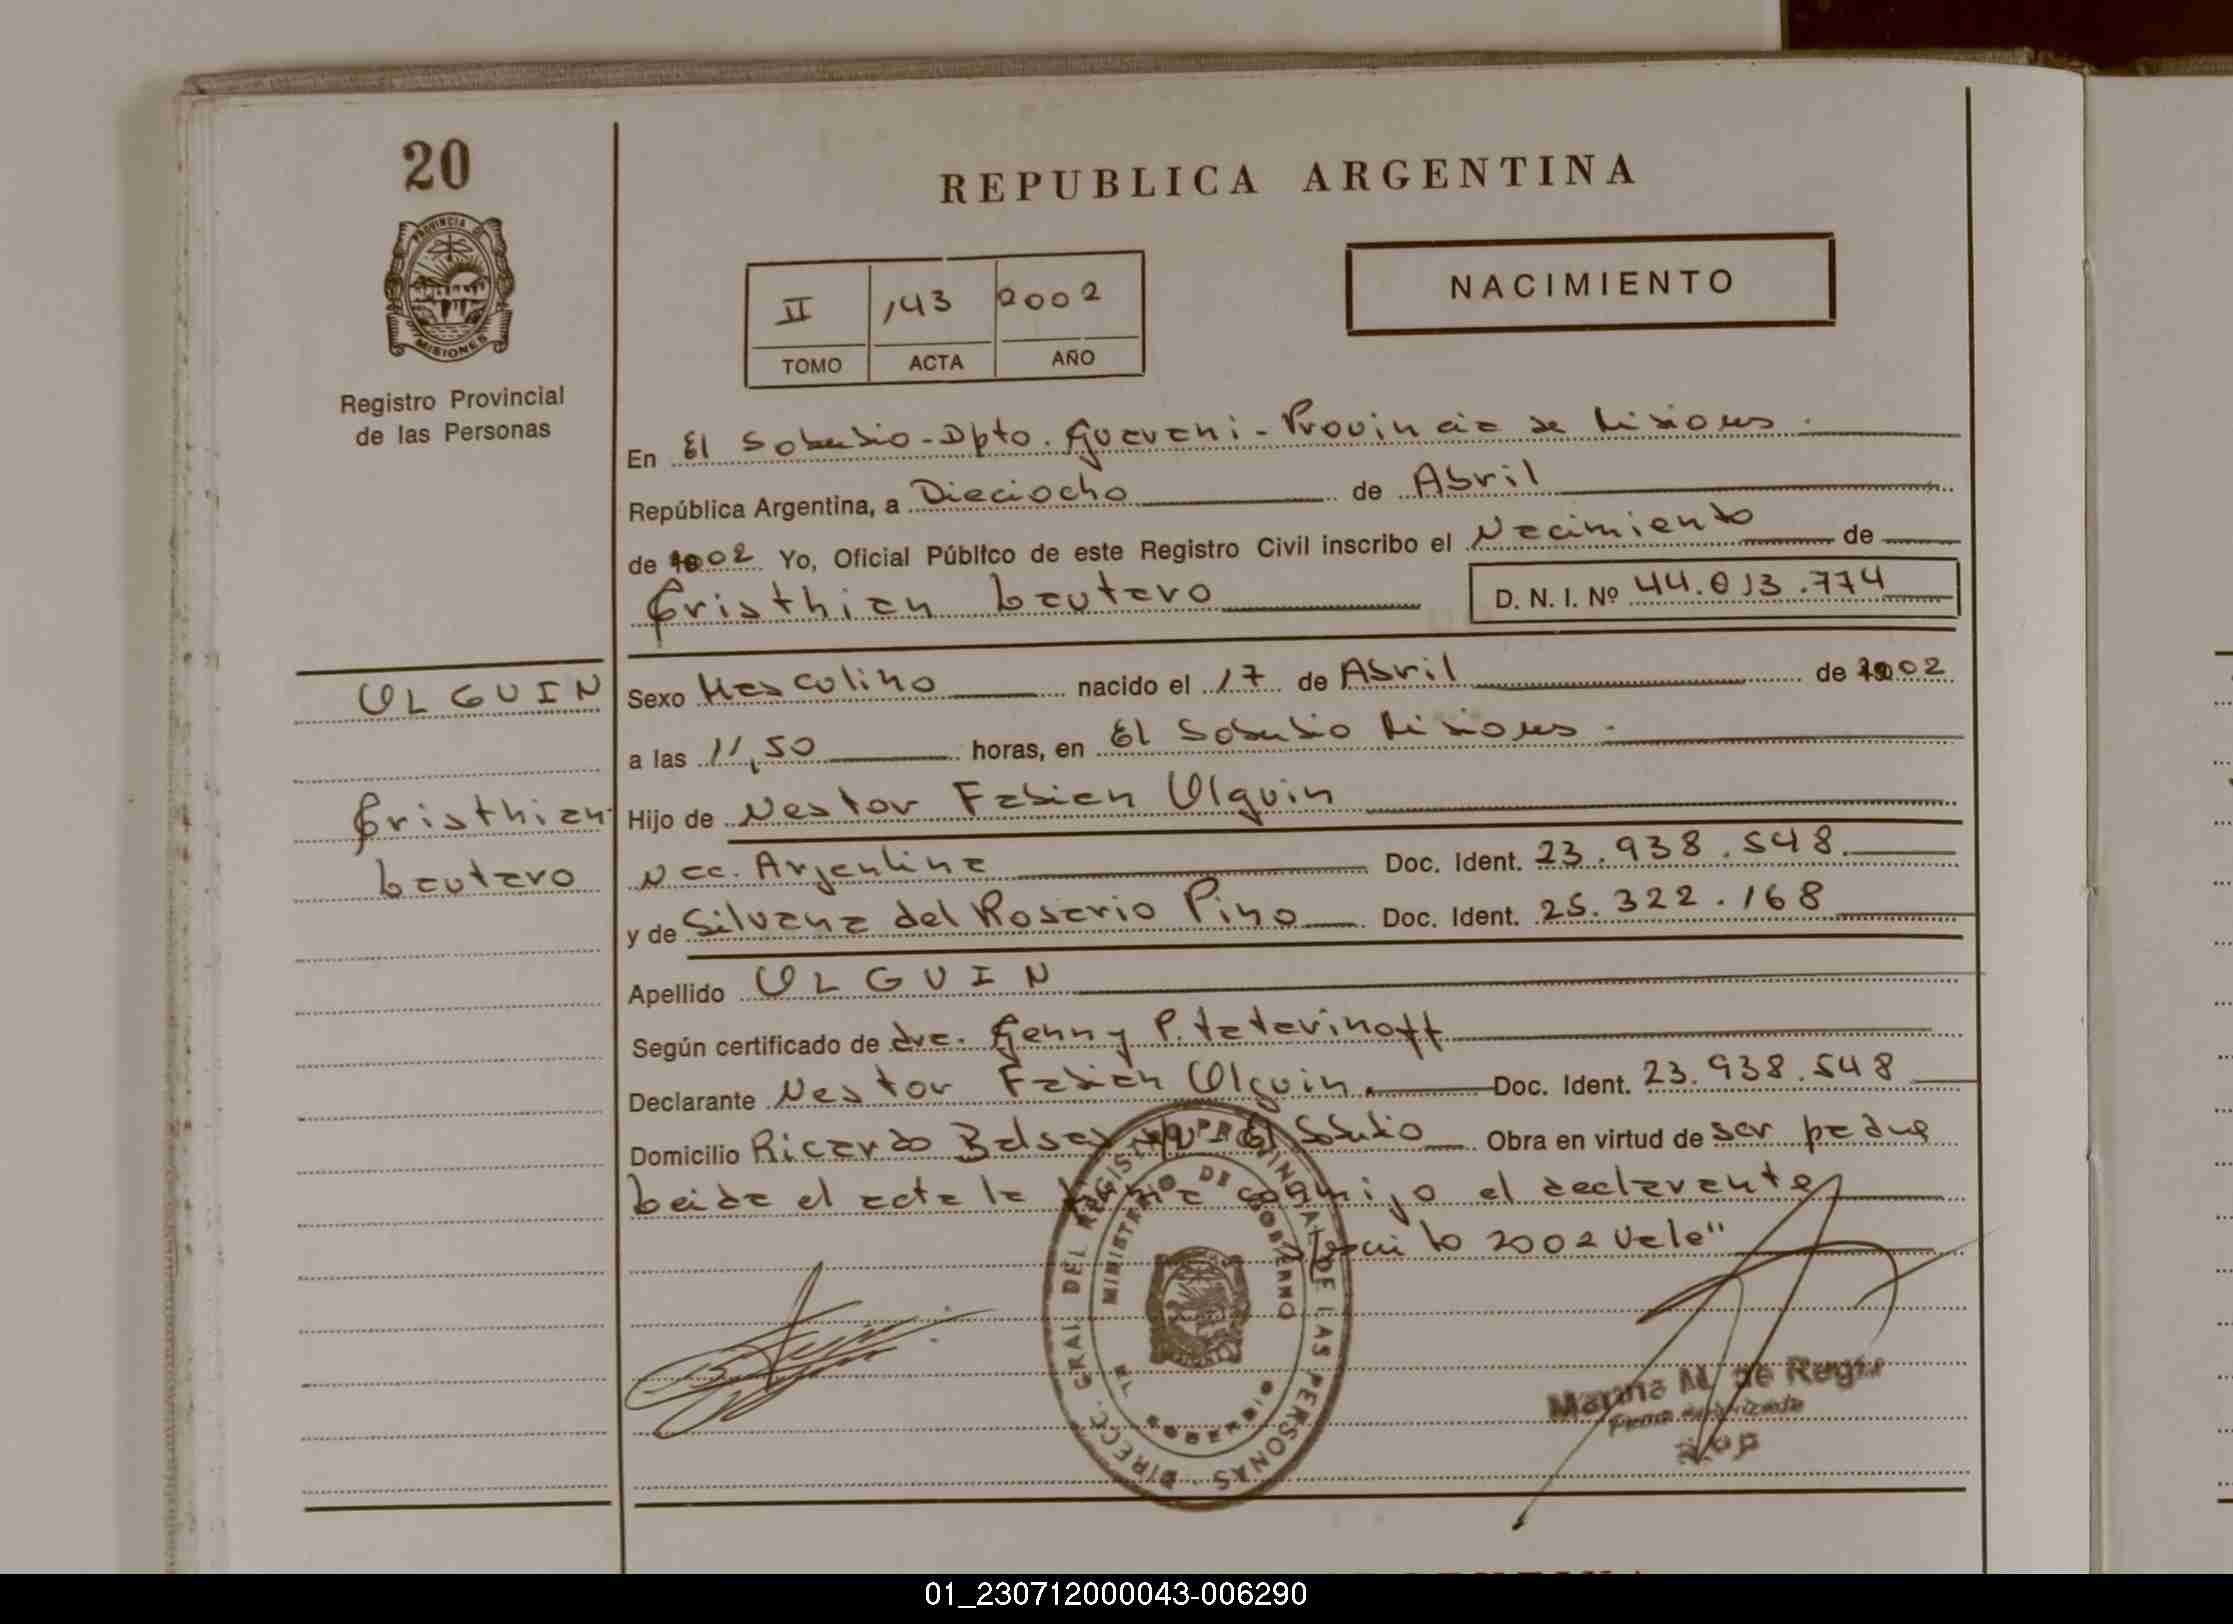 20
PROVINCIA DE
MISIONES
Registro Provincial
de las Personas
REPUBLICA ARGENTINA
II 143 2002
TOMO ACTA AÑO
NACIMIENTO
En El Soberbio - Dpto. Guarani - Provincia de Misiones.
República Argentina, a Dieciocho de Abril
de 2002 Yo, Oficial Público de este Registro Civil inscribo el Nacimiento de
Cristhian Lautaro D. N. I. Nº 44.013.774
Sexo Masculino nacido el 17 de Abril de 2002
a las 11,50 horas, en El Soberbio Misiones.
Hijo de Nestor Fabian Olguin
Nac. Argentina Doc. Ident. 23.938.548
y de Silvana del Rosario Pino Doc. Ident. 25.322.168
Apellido OLGUIN
Según certificado de dra. Genny P. Tatarinoff
Declarante Nestor Fabian Olguin. Doc. Ident. 23.938.548
Domicilio Ricardo Balsa El Soberbio Obra en virtud de ser padre
Leida el acta la firma conmigo el declarante
2002 Vale"
OLGUIN
Cristhian
Lautaro
DIRECC. GRAL DEL REGISTRO PROVINCIAL DE LAS PERSONAS
MINISTERIO DE GOBIERNO
EL SOBERBIO
Marina M. de
Firma autorizada
01_230712000043-006290